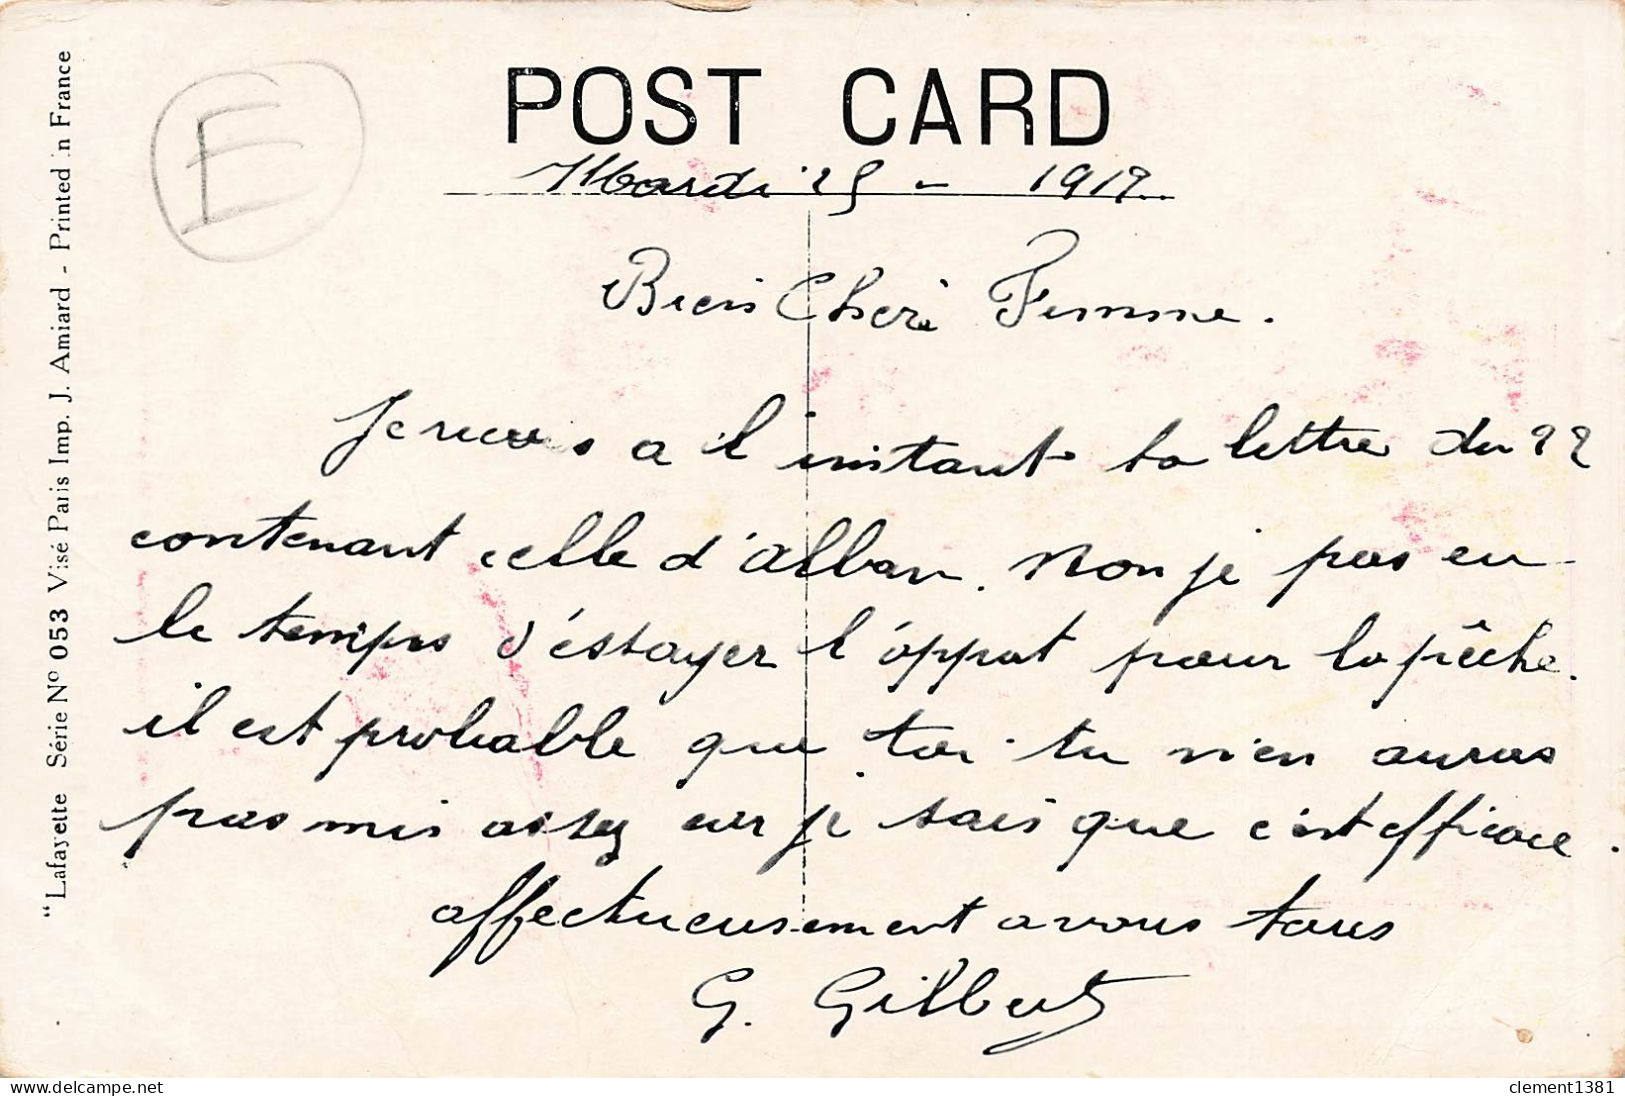 POST CARD
E
Mardi 25 - 1919
Bien Cheri Femme.
Je recois a l'instant ta lettre du 22
contenant celle d'Alban. Non je pas eu
le temps d'éssayer l'áppat pour la pêche.
il est probable que toi tu n'en auras
pas mis assez car je sais que c'est efficace.
affectueusement a vous tous
G. Gilbert
"Lafayette Série N° 053 Visé Paris Imp. J. Amiard - Printed in France
www.delcampe.net
clement1381